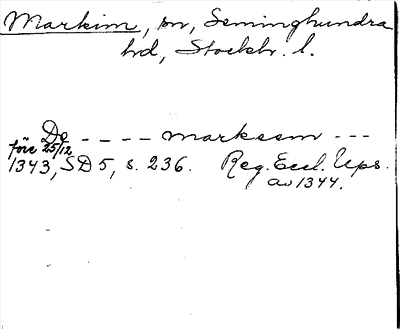 Markim, sn, Seminghundra
hd, Stockh. l.
De - - - - markeem - - -
före 25/12
1343, SD 5, s. 236. Reg. Eccl. Ups.
av 1344.